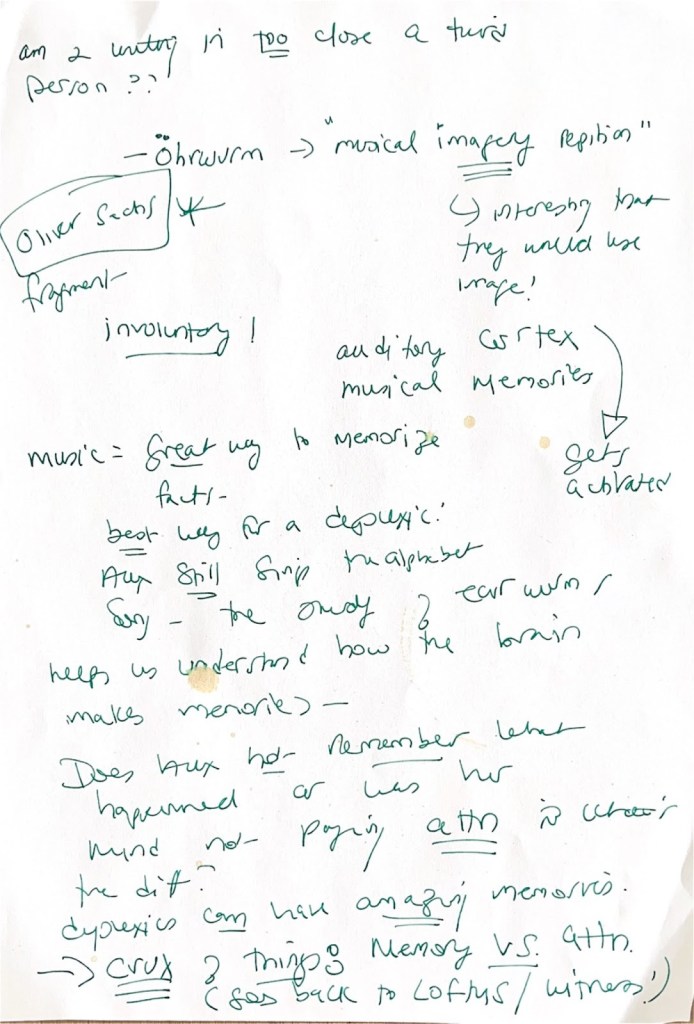 am I writing in too close a third
person ??
— Öhrwurm → "musical imagery repition"
Oliver Sachs
↳ interesting that
they would use
image!
fragment
involuntory !
auditory cortex
musical memories
gets
activated
music = great way to memorize
facts -
best way for a dyplexic!
Aux still sings the alphabet
Song - the study of ear wurms
helps us understand how the brain
makes memories —
Does Aux not remember what
happened or was her
mind not paying attn is what's
the diff?
dyplexics can have amazing memories.
→ crux of things: Memory vs. attn.
(goes back to Loftus / witness!)